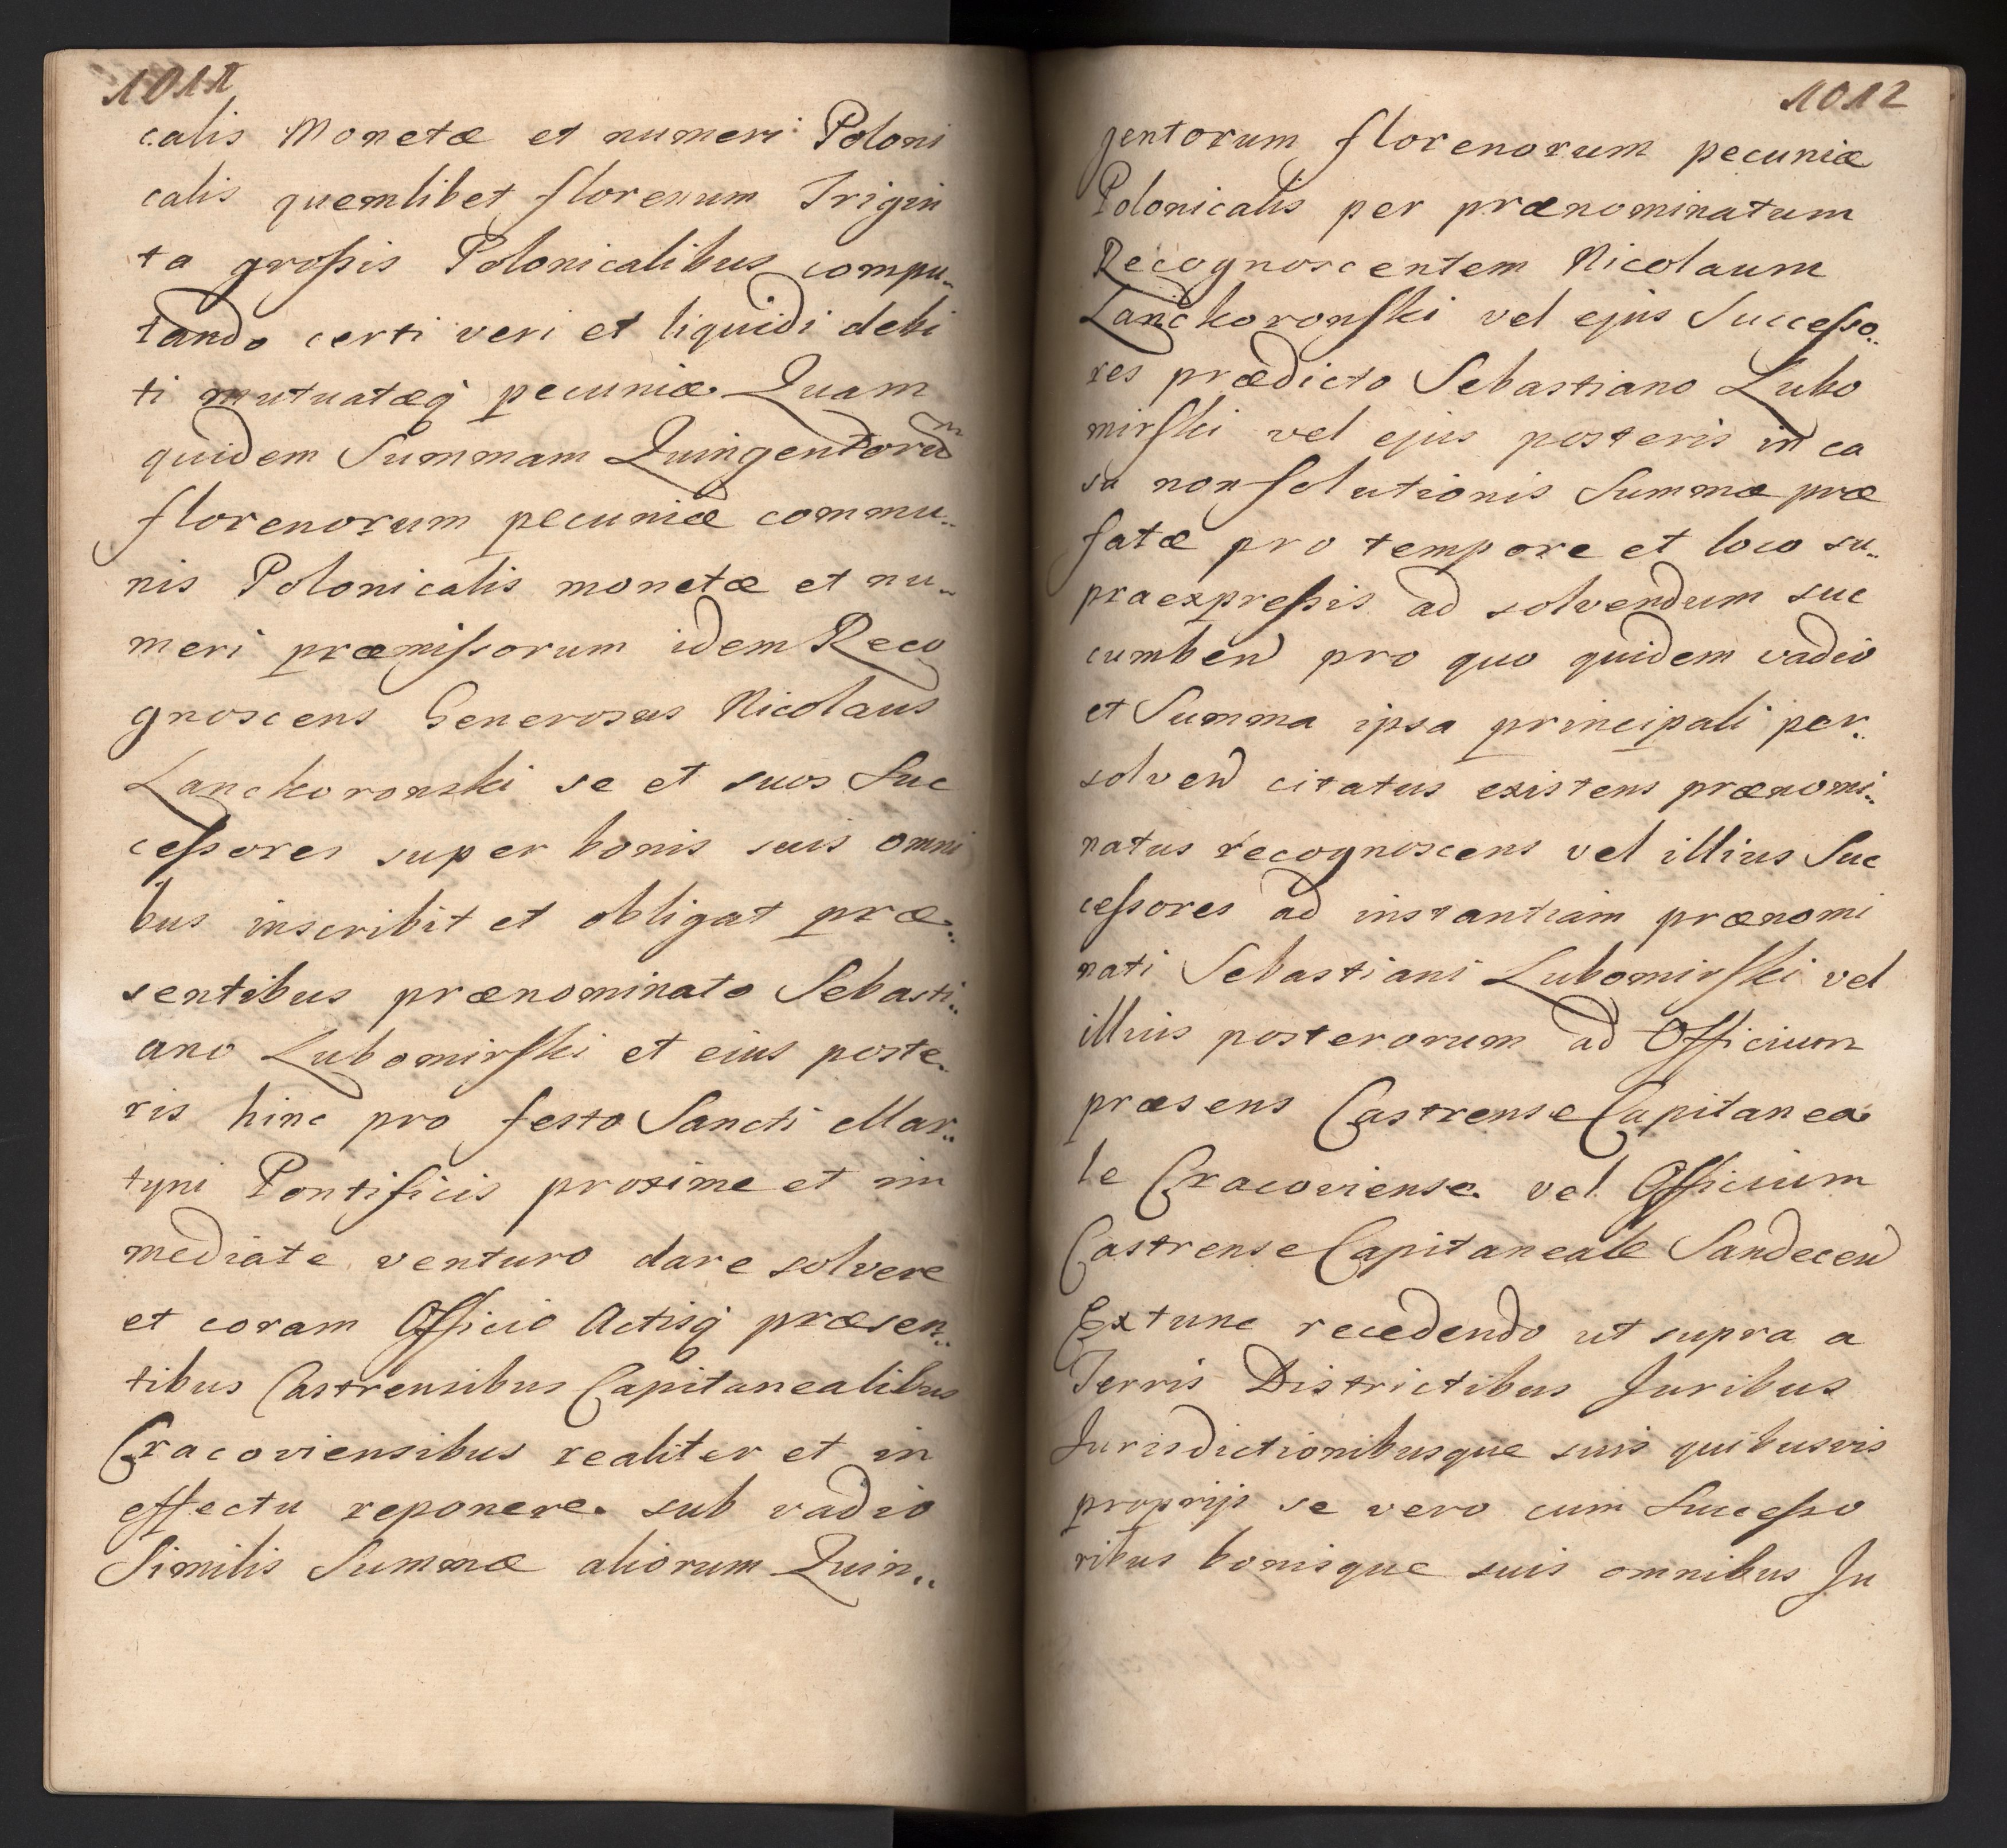 1011
calis Monetæ et numeri Poloni
calis quemlibet florenum Trigin
ta großis Polonicalibus compu„
tando certi veri et liquidi debi
ti mutuatæq pecuniæ. Quam
quidem Summam Quingentorũm
florenorum pecuniæ commu„
nis Polonicalis monetæ et nu„
meri præmissorum idem Reco
gnoscens Generosus Nicolaus
Lanckoronski se et suos Suc
cessores super bonis suis omni
bus inscribit et obligat præ„
sentibus prænominato Sebasti„
ano Lubomirski et eius poste„
ris hinc pro festo Sancti Mar„
tyni Pontificis proxime et im
mediate venturo dare solvere
et coram Officio Actisq præsen„
tibus Castrensibus Capitanealibus
Cracoviensibus realiter et in
effectu reponere. sub vadio
Similis Summæ aliorum Quin„
1012
gentorum florenorum pecuniæ
Polonicalis per prænominatum
Recognoscentem Nicolaum
Lanckoronski vel ejus Successo„
res prædicto Sebastiano Lubo
mirski vel ejus posteris in ca
su non solutionis Summæ præ
fatæ pro tempore et loco su„
praexpressis ad solvendum suc
cumben pro quo quidem vadio
et Summa ipsa principali per„
solven citatus existens prænomi„
natus recognoscens vel illius Suc
cessores ad instantiam prænomi
nati Sebastiani Lubomirski vel
illius posterorum ad Officium
præsens Castrense Capitanea
le Cracoviense. vel Officium
Castrense Capitaneale Sandecen
Extunc recedendo ut supra a
Terris Districtibus Juribus
Jurisdictionibusque suis quibusvis
proprijs se vero cum Successo
ribus bonisque suis omnibus Ju